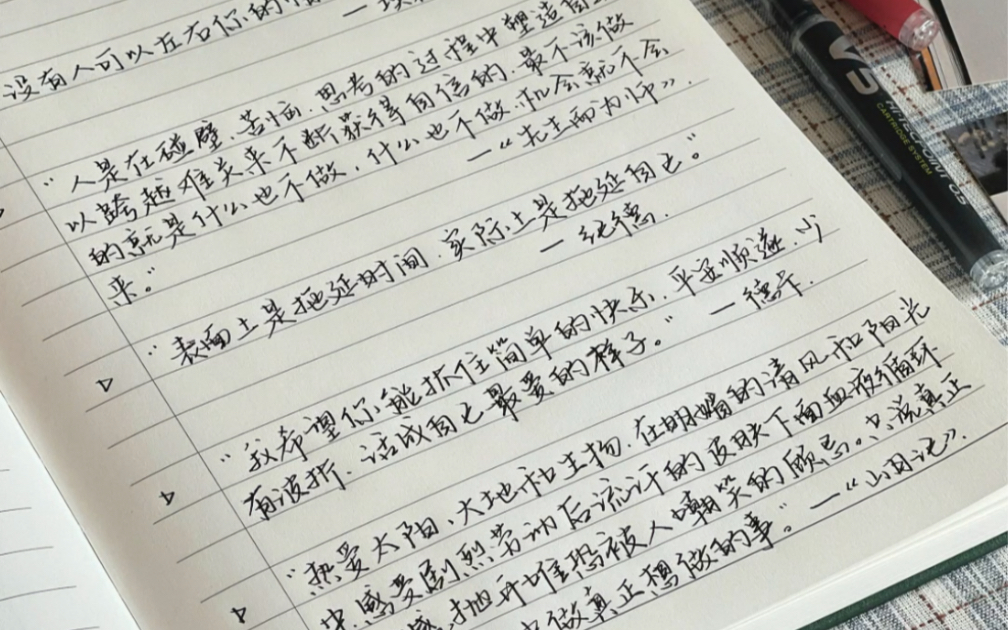 没有人可以左右你的
“人是在碰壁、苦恼、思考的过程中塑造自己
以跨越难关来不断获得自信的，最不该做
的就是什么也不做，什么也不做，机会就不会
来。”
—《先生而为师》.
“表面上是拖延时间，实际上是拖延自己。”
—纪德.
“我希望你能抓住简单的快乐，平安顺遂，少
有波折，活成自己最爱的样子。” —德卡.
“热爱太阳、大地和生物，在明媚的清风和阳光
中，感受剧烈劳动后流汗的皮肤下面血液循环
感，抛开唯恐被人嘲笑的顾忌。只说真正
做真正想做的事”。—《小日记》.
V5
HI-TECPOINT V5
CARTRIDGE SYSTEM